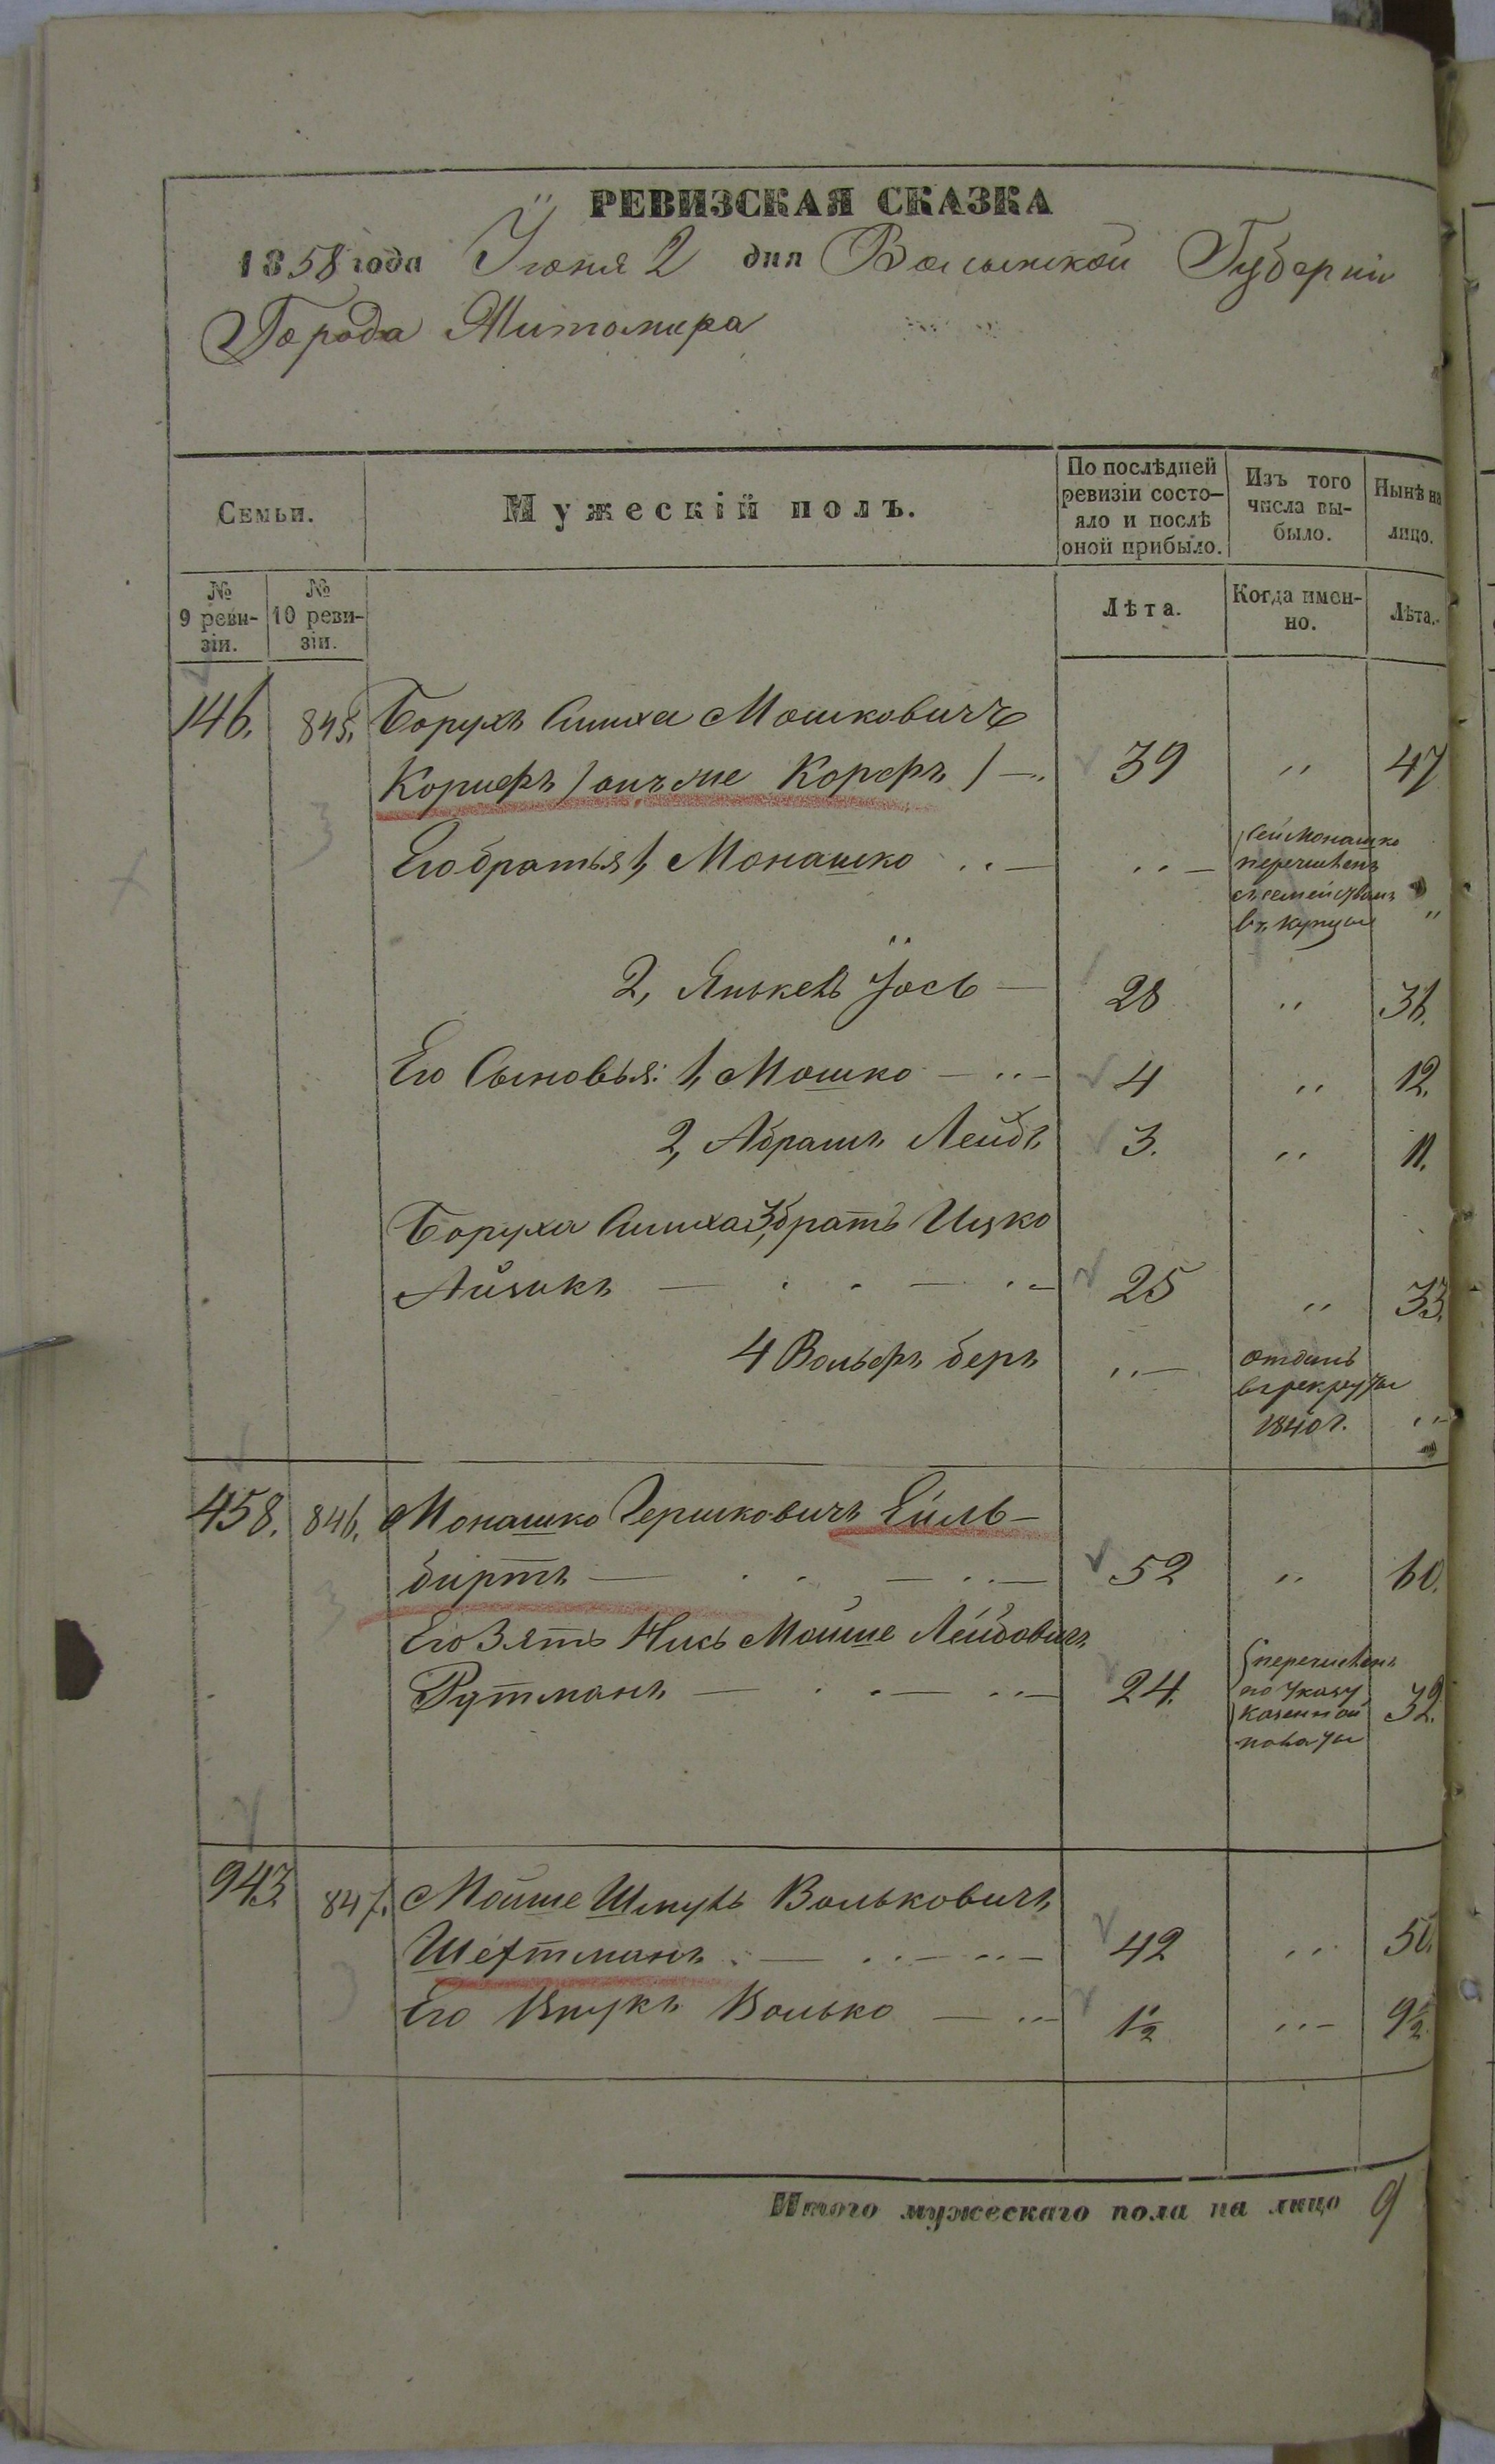 РЕВИЗСКАЯ СКАЗКА
1858 года Іюня 2 дня Волынской Губерніи
Города Житомира
Семьи.
Мужескій полъ.
По послѣдней ревизіи состо-
яло и послѣ
оной прибыло.
Изъ того
числа вы-
было.
Нынѣ на
лицо.
№
9 реви-
зіи.
№
10 реви-
зіи.
Лѣта.
Когда имен-
но.
Лѣта.
146. 845. Борухъ Симха Мошковичъ
Корифъ / онъ же Корфъ / — 39 " 47
Его братья 1, Монашко .. — .. — Сей Монашко
перечисленъ
съ семействомъ
въ купцы "
2, Янкель Іось — 28 " 36.
Его Сыновья: 1, Мошко — .. — 4 " 12.
2, Абрамъ Лейбъ 3. " 11.
Боруха Симха 3, братъ Ицко
Айзикъ — . . — .. — 25 " 33.
4 Вольфъ беръ .. — отданъ
въ рекруты
1840 г. "
458. 846. Монашко Гершковичъ Ейль-
биртъ — . . — .. — 52 " 60.
Его Зять Мойше Лейбовичъ
Рутманъ — . . — .. — 24. перечисленъ
по Указу
Казенной
палаты 32.
943 847. Мойше Шмуль Вольковичъ
Шефтманъ . — .. — .. — 42 " 50.
Его Внукъ Волько — .. — 1½ " 9½.
Итого мужескаго пола на лицо 9